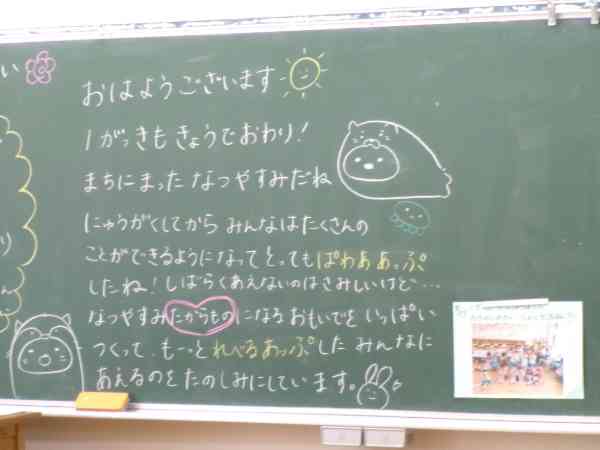 おはようございます
1がっきもきょうでおわり!
まちにまったなつやすみだね
にゅうがくしてからみんなはたくさんの
ことができるようになってとってもぱわああっぷ
したね!しばらくあえないのはさみしいけど…
なつやすみたからものになるおもいでをいっぱい
つくって、もーっとれべるあっぷしたみんなに
あえるのをたのしみにしています。
い
り